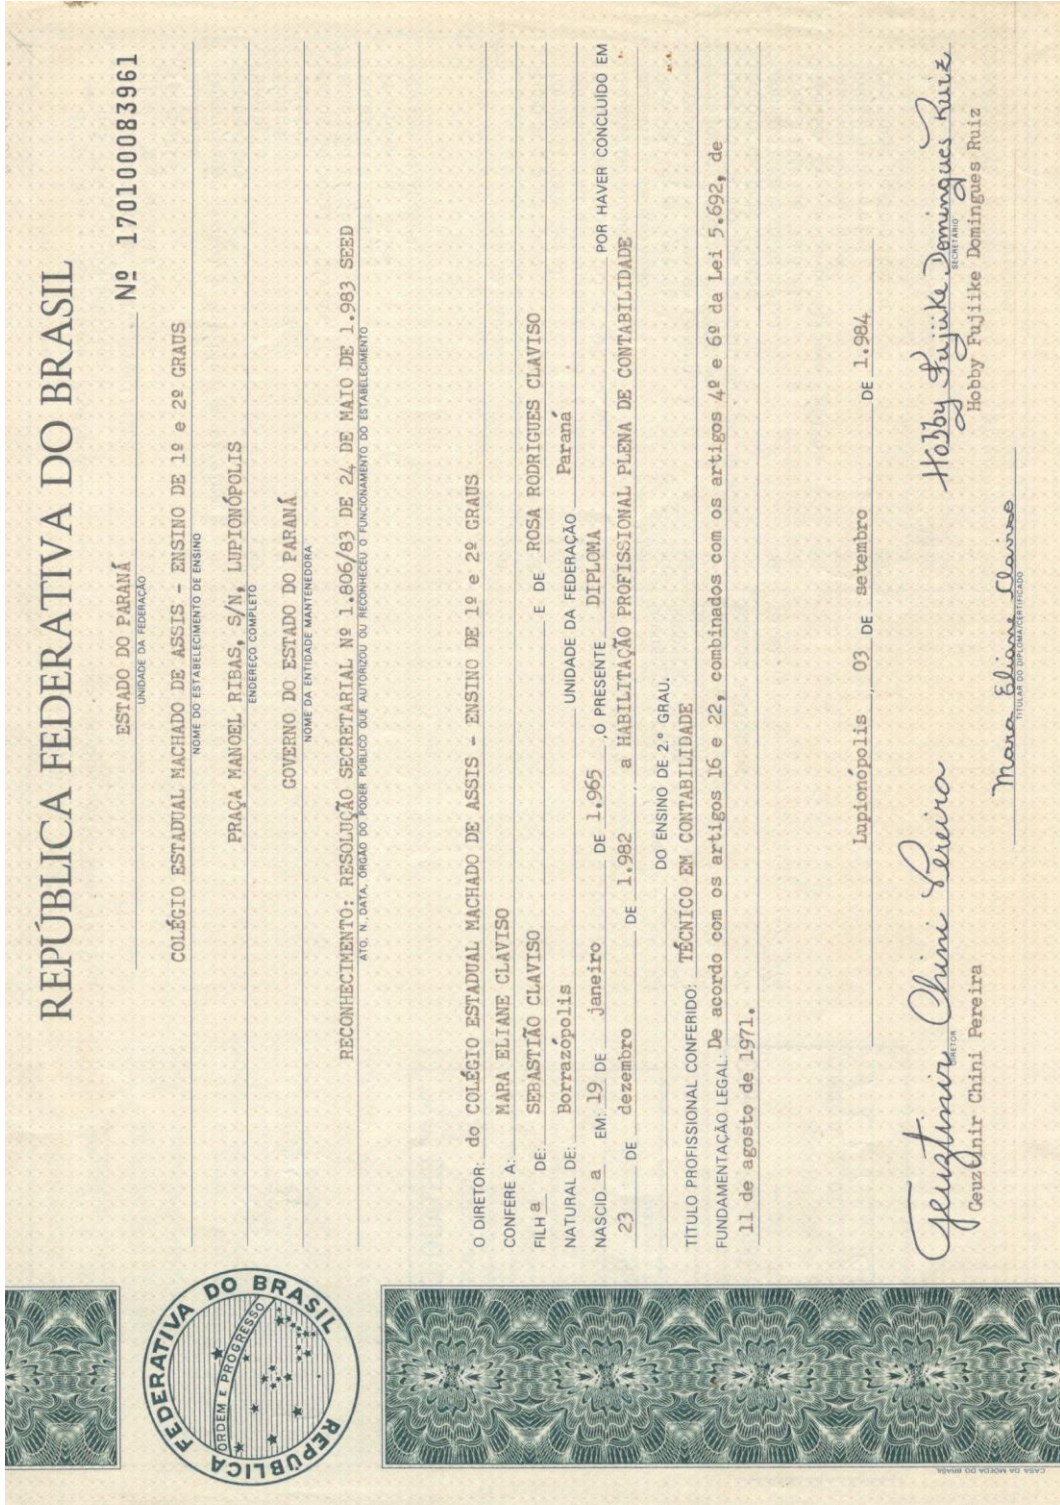 REPÚBLICA FEDERATIVA DO BRASIL
Nº 170100083961
ESTADO DO PARANÁ
UNIDADE DA FEDERAÇÃO
COLÉGIO ESTADUAL MACHADO DE ASSIS - ENSINO DE 1º e 2º GRAUS
NOME DO ESTABELECIMENTO DE ENSINO
PRAÇA MANOEL RIBAS, S/N, LUPIONÓPOLIS
ENDEREÇO COMPLETO
GOVERNO DO ESTADO DO PARANÁ
NOME DA ENTIDADE MANTENEDORA
RECONHECIMENTO: RESOLUÇÃO SECRETARIAL Nº 1.806/83 DE 24 DE MAIO DE 1.983 SEED
ATO, N., DATA, ÓRGÃO DO PODER PÚBLICO QUE AUTORIZOU OU RECONHECEU O FUNCIONAMENTO DO ESTABELECIMENTO
O DIRETOR: do COLÉGIO ESTADUAL MACHADO DE ASSIS - ENSINO DE 1º e 2º GRAUS
CONFERE A: MARA ELIANE CLAVISO
FILHa DE: SEBASTIÃO CLAVISO E DE ROSA RODRIGUES CLAVISO
NATURAL DE: Borrazópolis UNIDADE DA FEDERAÇÃO Paraná
NASCIDa EM: 19 DE janeiro DE 1.965, O PRESENTE DIPLOMA POR HAVER CONCLUÍDO EM
23 DE dezembro DE 1.982, a HABILITAÇÃO PROFISSIONAL PLENA DE CONTABILIDADE
DO ENSINO DE 2.º GRAU.
TÍTULO PROFISSIONAL CONFERIDO: TÉCNICO EM CONTABILIDADE
FUNDAMENTAÇÃO LEGAL: De acordo com os artigos 16 e 22, combinados com os artigos 4º e 6º da Lei 5.692, de
11 de agosto de 1971.
Lupionópolis, 03 DE setembro DE 1.984
Geuztinir Chini Pereira
DIRETOR
Geuztinir Chini Pereira
Hobby Fujiike Domingues Ruiz
SECRETÁRIO
Hobby Fujiike Domingues Ruiz
Mara Eliane Claviso
TITULAR DO DIPLOMA/CERTIFICADO
REPÚBLICA FEDERATIVA DO BRASIL
ORDEM E PROGRESSO
CASA DA MOEDA DO BRASIL